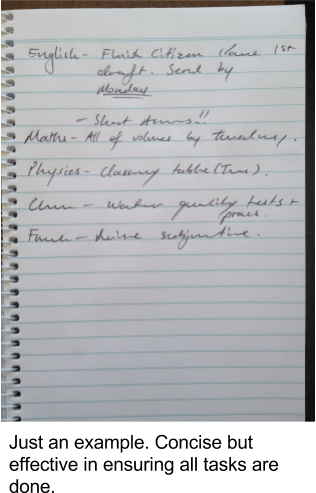 English - Finish Citizen Kane 1st
draft. Send by
Monday
- Short Answers!!
Maths - All of volumes by Tuesday.
Physics - Classmy table (Tues).
Chem - Water quality tests +
pracs.
French - Revise subjunctive.
Just an example. Concise but
effective in ensuring all tasks are
done.